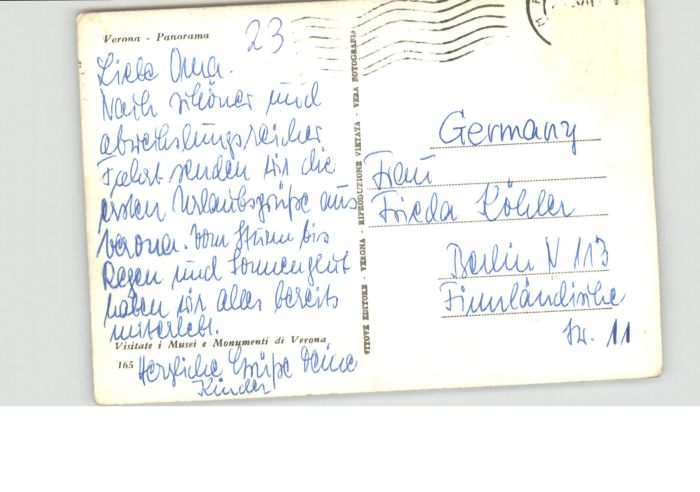 Verona - Panorama
23
Liebe Oma.
Nach schöner und
abwechslungsreicher
Fahrt senden wir die
ersten Urlaubsgrüße aus
Verona. Vom Sturm bis
Regen und Sonnenglut
haben wir alles bereits
miterlebt.
Visitate i Musei e Monumenti di Verona
165
Herzliche Grüße Deine
Kinder
VITOVE EDITORE - VERONA - RIPRODUZIONE VIETATA - VERA FOTOGRAFIA
Germany
Frau
Frieda Köhler
Berlin N 113
Finnländische
Str. 11